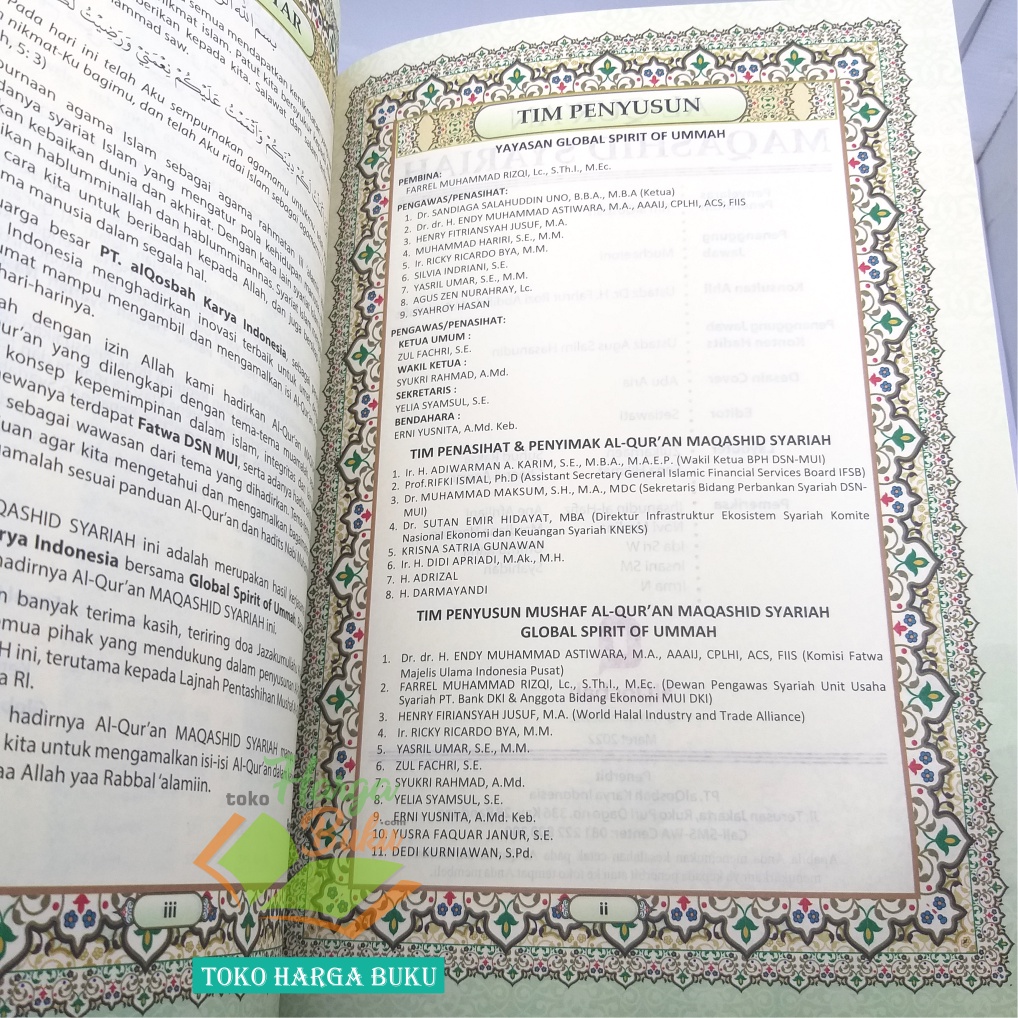 TAR
semua mendapatkan
nikmat islam. Patut kita
berikan kepada kita. Salawat dan
ammad saw.
Pada hari ini telah Aku sempurnakan agamamu untuk
nikmat-Ku bagimu, dan telah Aku ridai Islam sebagai
h, 5: 3)
purnaan agama Islam sebagai agama rahmatan lil
danya syariat Islam yang mengatur pola kehidupan
kan kebaikan dunia dan akhirat. Dengan kata lain
ikan hablumminallah dan hablumminannas. Syariat Islam
cara kita untuk beribadah kepada Allah, dan juga
ama manusia dalam segala hal.
uarga besar PT. alQosbah Karya Indonesia, sebagai
Indonesia menghadirkan inovasi terbaik untuk
umat mampu mengambil dan mengamalkan isi Al-Qur'an
hari-harinya.
ah dengan izin Allah kami hadirkan Al-Qur'an
ur'an yang dilengkapi dengan tema-tema
konsep kepemimpinan dalam islam, integritas
ewanya terdapat Fatwa DSN MUI, serta adanya
sebagai wawasan dari tema yang dihadirkan.
uan agar kita mengetahui dan mengamalkan
amalah sesuai panduan Al-Qur'an dan hadits Nabi
QASHID SYARIAH ini adalah merupakan hasil
arya Indonesia bersama Global Spirit of Ummah.
hadirnya Al-Qur'an MAQASHID SYARIAH ini.
n banyak terima kasih, teriring doa Jazakumullahu
emua pihak yang mendukung dalam penyusunan
H ini, terutama kepada Lajnah Pentashihan Mushaf
a RI.
hadirnya Al-Qur'an MAQASHID SYARIAH
kita untuk mengamalkan isi-isi Al-Qur'an dalam
aa Allah yaa Rabbal 'alamiin.
iii
TIM PENYUSUN
YAYASAN GLOBAL SPIRIT OF UMMAH
PEMBINA:
FARREL MUHAMMAD RIZQI, Lc., S.Th.I., M.Ec.
PENGAWAS/PENASIHAT:
1. Dr. SANDIAGA SALAHUDDIN UNO, B.B.A., M.B.A (Ketua)
2. Dr. dr. H. ENDY MUHAMMAD ASTIWARA, M.A., AAAIJ, CPLHI, ACS, FIIS
3. HENRY FITRIANSYAH JUSUF, M.A.
4. MUHAMMAD HARIRI, S.E., M.M.
5. Ir. RICKY RICARDO BYA, M.M.
6. SILVIA INDRIANI, S.E.
7. YASRIL UMAR, S.E., M.M.
8. AGUS ZEN NURAHRAY, Lc.
9. SYAHROY HASAN
PENGAWAS/PENASIHAT:
KETUA UMUM :
ZUL FACHRI, S.E.
WAKIL KETUA :
SYUKRI RAHMAD, A.Md.
SEKRETARIS :
YELIA SYAMSUL, S.E.
BENDAHARA :
ERNI YUSNITA, A.Md. Keb.
TIM PENASIHAT & PENYIMAK AL-QUR'AN MAQASHID SYARIAH
1. Ir. H. ADIWARMAN A. KARIM, S.E., M.B.A., M.A.E.P. (Wakil Ketua BPH DSN-MUI)
2. Prof.RIFKI ISMAL, Ph.D (Assistant Secretary General Islamic Financial Services Board IFSB)
3. Dr. MUHAMMAD MAKSUM, S.H., M.A., MDC (Sekretaris Bidang Perbankan Syariah DSN-
MUI)
4. Dr. SUTAN EMIR HIDAYAT, MBA (Direktur Infrastruktur Ekosistem Syariah Komite
Nasional Ekonomi dan Keuangan Syariah KNEKS)
5. KRISNA SATRIA GUNAWAN
6. Ir. H. DIDI APRIADI, M.Ak., M.H.
7. H. ADRIZAL
8. H. DARMAYANDI
TIM PENYUSUN MUSHAF AL-QUR'AN MAQASHID SYARIAH
GLOBAL SPIRIT OF UMMAH
1. Dr. dr. H. ENDY MUHAMMAD ASTIWARA, M.A., AAAIJ, CPLHI, ACS, FIIS (Komisi Fatwa
Majelis Ulama Indonesia Pusat)
2. FARREL MUHAMMAD RIZQI, Lc., S.Th.I., M.Ec. (Dewan Pengawas Syariah Unit Usaha
Syariah PT. Bank DKI & Anggota Bidang Ekonomi MUI DKI)
3. HENRY FIRIANSYAH JUSUF, M.A. (World Halal Industry and Trade Alliance)
4. Ir. RICKY RICARDO BYA, M.M.
5. YASRIL UMAR, S.E., M.M.
6. ZUL FACHRI, S.E.
7. SYUKRI RAHMAD, A.Md.
8. YELIA SYAMSUL, S.E.
9. ERNI YUSNITA, A.Md. Keb.
10. YUSRA FAQUAR JANUR, S.E.
11. DEDI KURNIAWAN, S.Pd.
ii
toko Harga
Buku
.com
TOKO HARGA BUKU